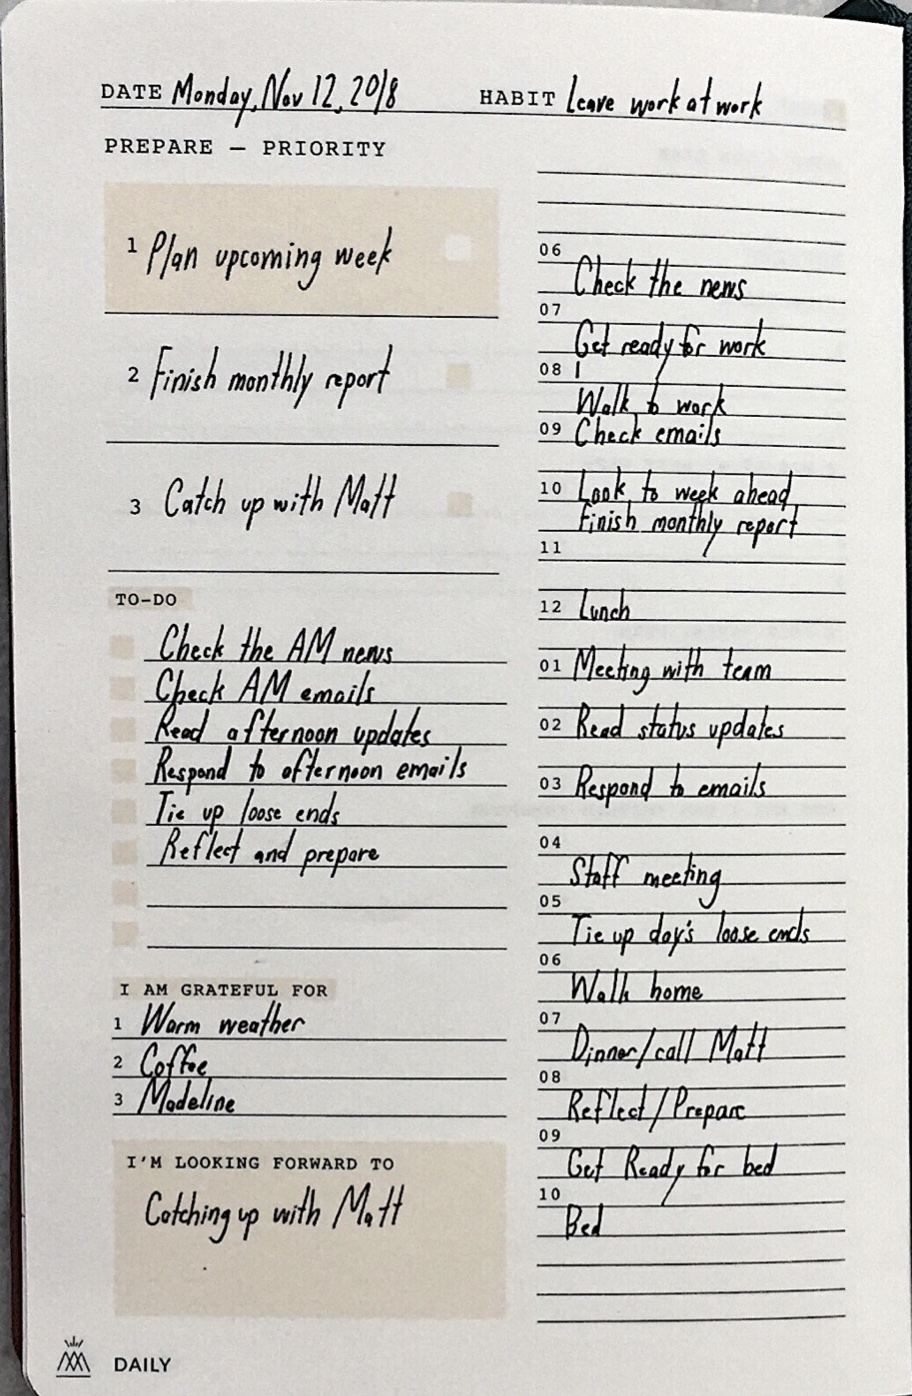 DATE Monday, Nov 12, 2018
HABIT Leave work at work
PREPARE — PRIORITY
1 Plan upcoming week
2 Finish monthly report
3 Catch up with Matt
TO-DO
Check the AM news
Check AM emails
Read afternoon updates
Respond to afternoon emails
Tie up loose ends
Reflect and prepare
I AM GRATEFUL FOR
1 Warm weather
2 Coffee
3 Madeline
I'M LOOKING FORWARD TO
Catching up with Matt
06
Check the news
07
Get ready for work
08
Walk to work
09 Check emails
10 Look to week ahead
Finish monthly report
11
12 Lunch
01 Meeting with team
02 Read status updates
03 Respond to emails
04
Staff meeting
05
Tie up day's loose ends
06
Walk home
07
Dinner/call Matt
08
Reflect/Prepare
09
Get Ready for bed
10
Bed
DAILY